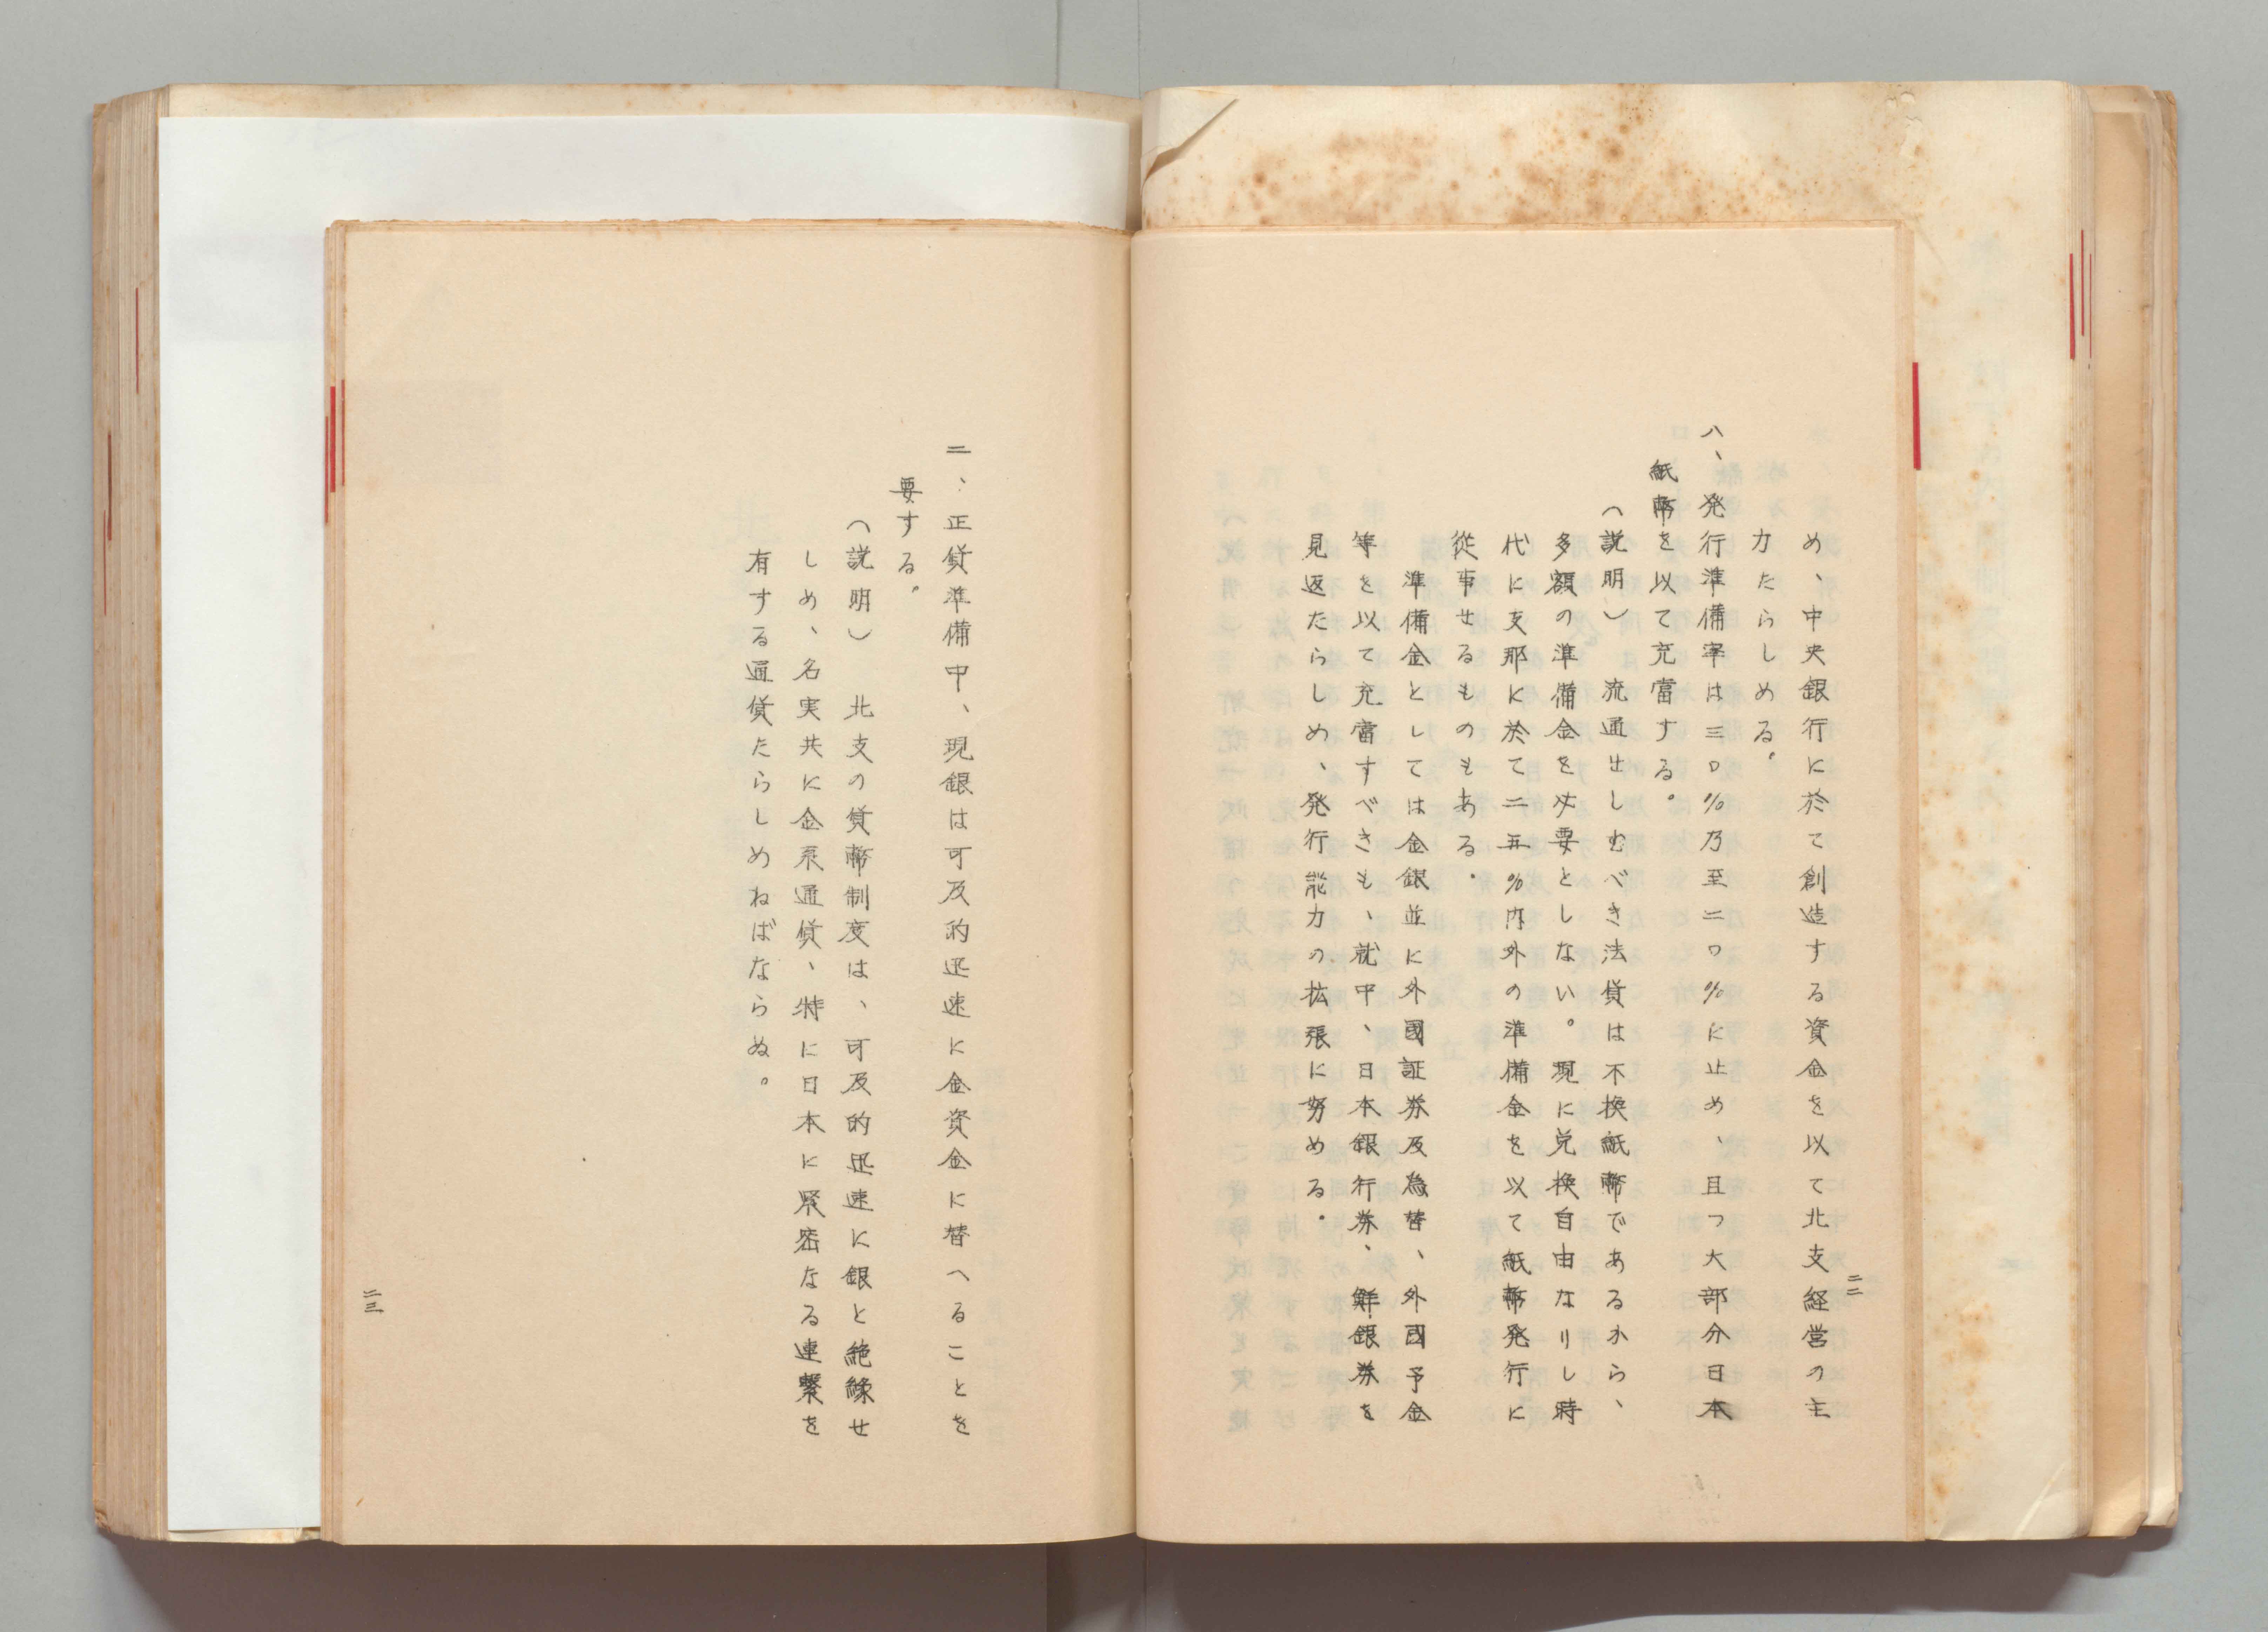 め、中央銀行に於て創造する資金を以て北支経営の主
力たらしめる。
ハ、発行準備率は三〇%乃至二〇%に止め、且つ大部分日本
紙幣を以て充當する。
(説明) 流通せしむべき法貨は不換紙幣であるから、
多額の準備金を必要としない。現に兌換自由なりし時
代に支那に於て二五%内外の準備金を以て紙幣発行に
従事せるものもある。
準備金としては金銀並に外國証券及為替、外國予金
等を以て充當すべきも、就中、日本銀行券、鮮銀券を
見返たらしめ、発行能力の拡張に努める。
二二
ニ、正貨準備中、現銀は可及的迅速に金資金に替へることを
要する。
(説明) 北支の貨幣制度は、可及的迅速に銀と絶縁せ
しめ、名実共に金系通貨、特に日本に緊密なる連繫を
有する通貨たらしめねばならぬ。
二三